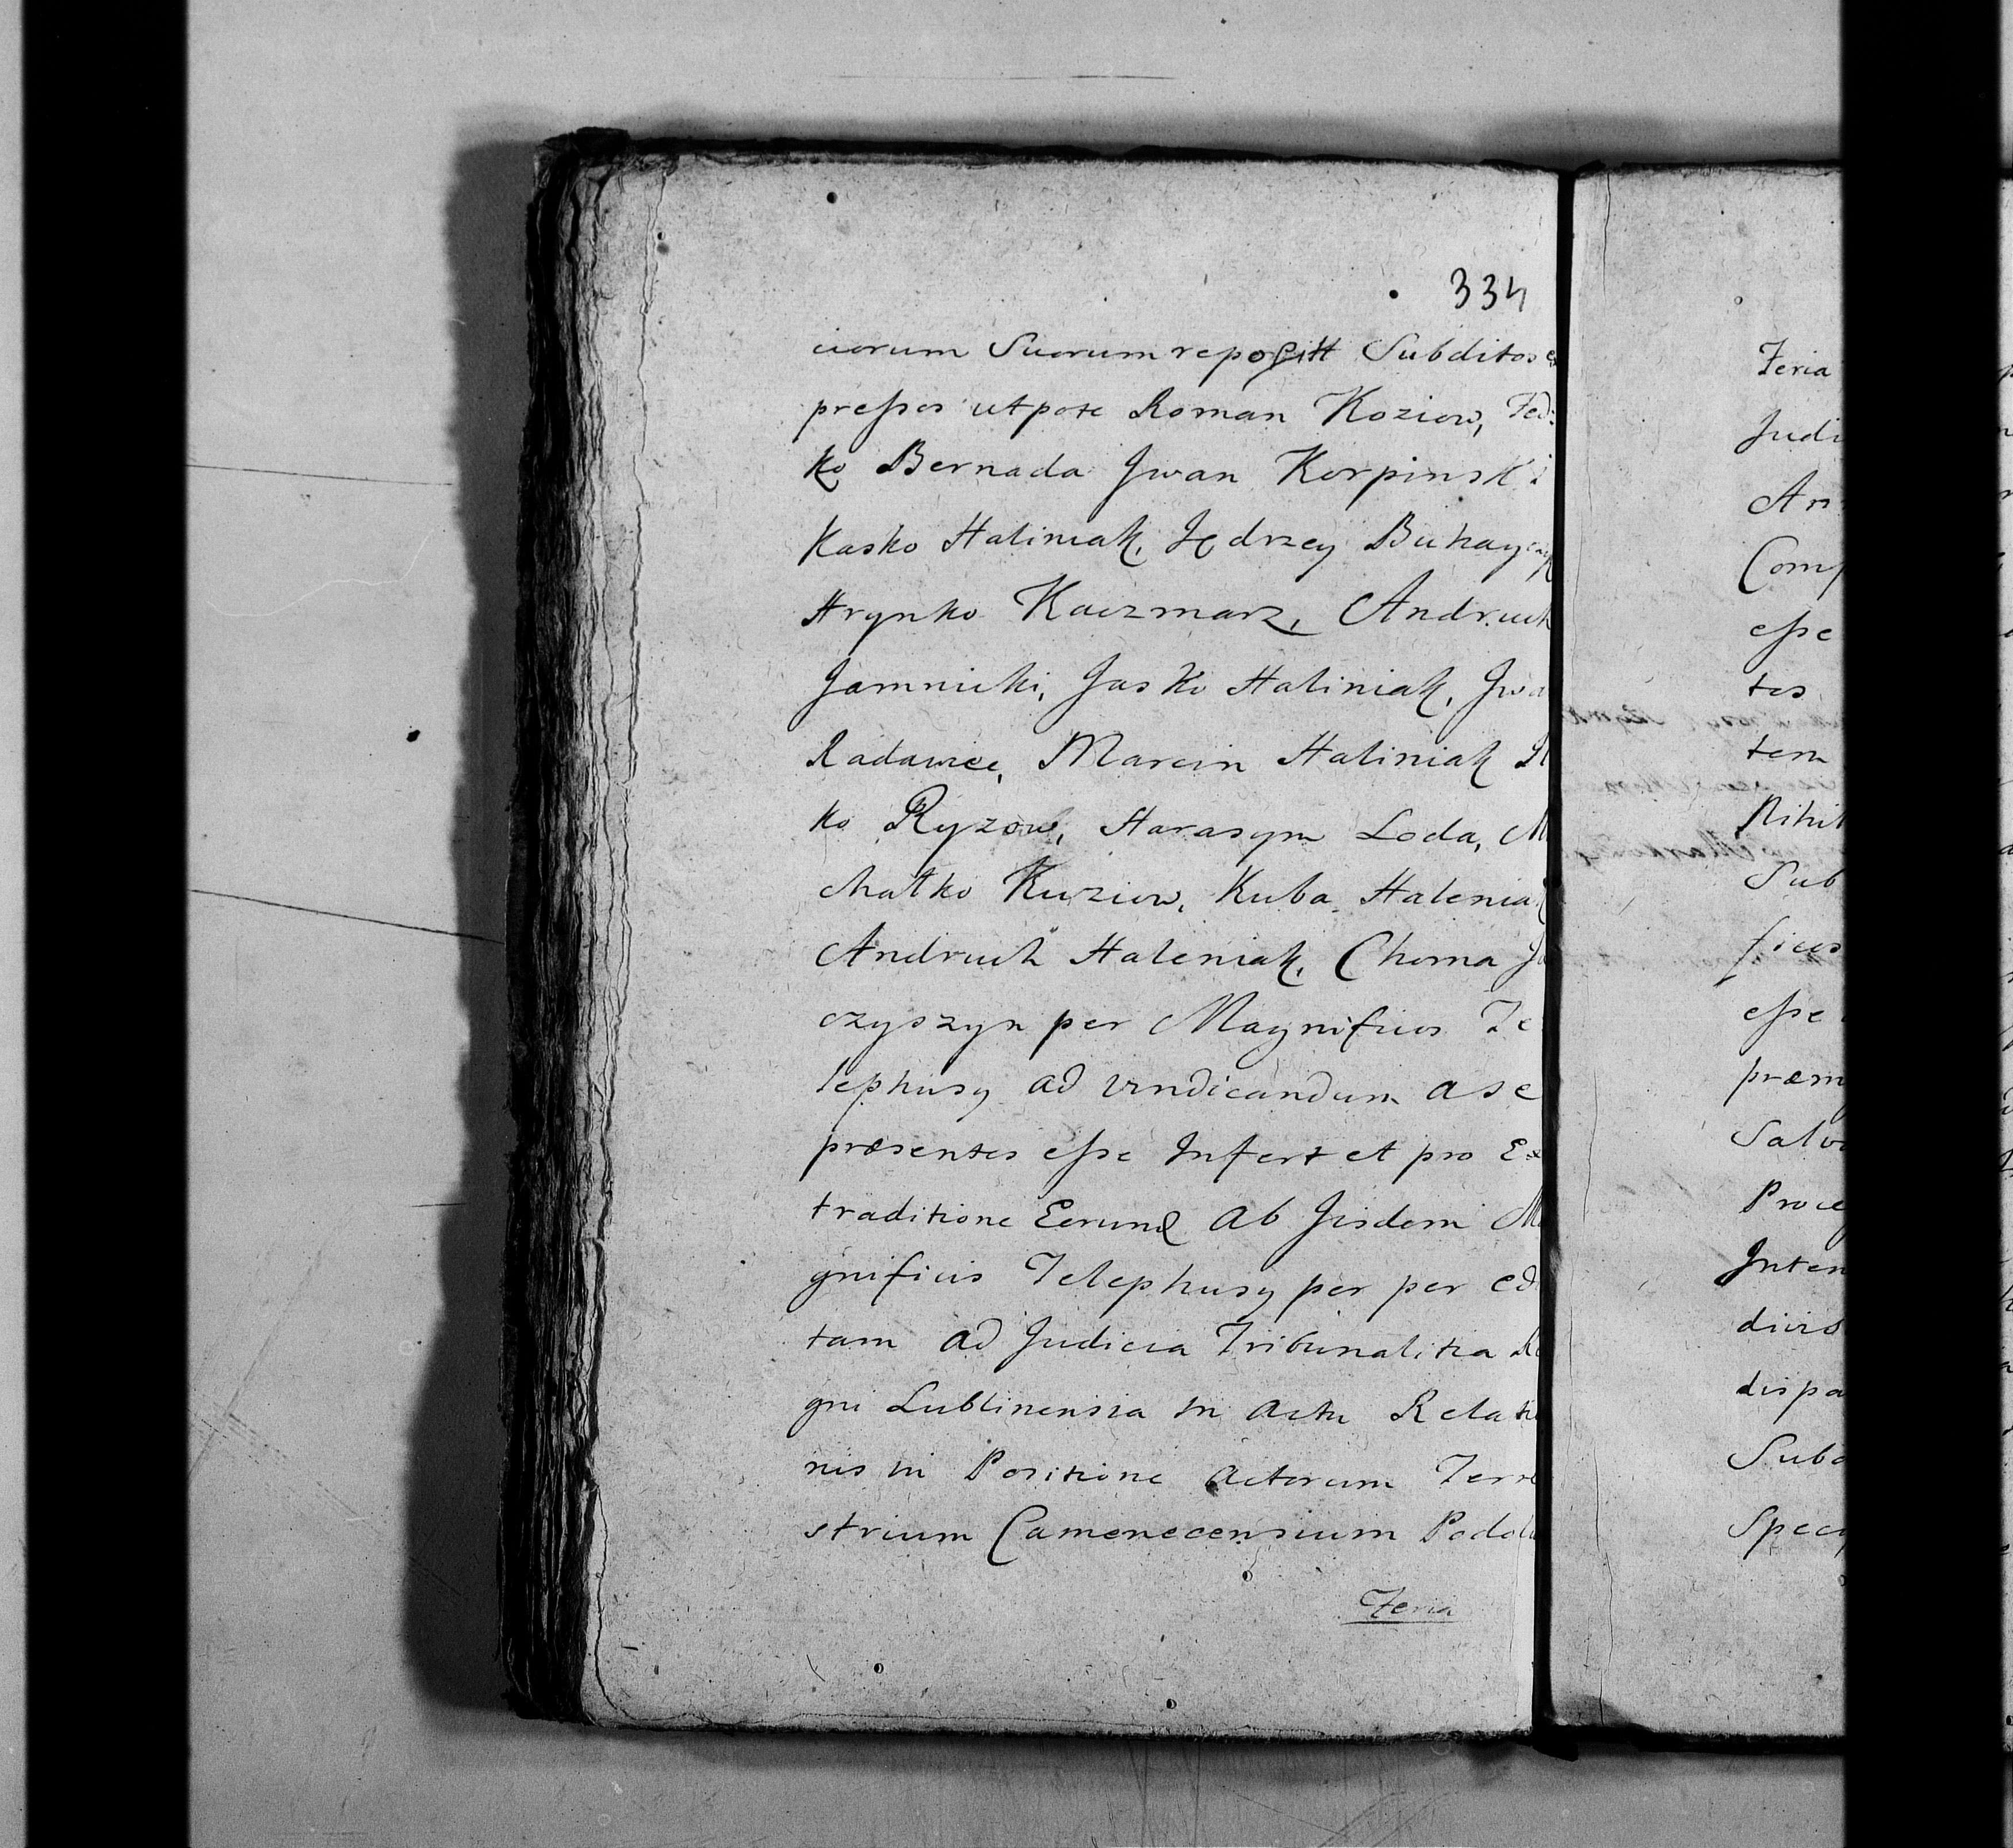 334
ciorum Suorum reposcitt Subditos ex
pressos utpote Roman Koziow, Fed:
ko Bernada Jwan Korpinski
Kasko Haliniak, Jędrzey Buhayczyk
Hrynko Kaczmarz, Andruch
Jamnicki, Jasko Haliniak, Jwa
Radawiec, Marcin Haliniak
ko Ryzow, Harasym Loda, M
chałko Kuziow, Kuba Haleniak
Andruch Haleniak, Choma
czyszyn per Magnificos Te
lephusy ad vindicandum a se
præsentes esse Infert et pro Ex
traditione Eorund ab Jisdem Ma
gnificis Telephusy per per ed
tam ad Judicia Tribunalitia Re
gni Lublinensia in actu Relatio
nis in Positione actorum Terre
strium Camenecensium Podol
Feria
Feria
Judi
An
Com
esse
tes
tem
Nihil
Sub
ficos
esse
præm
Salv
Proce
Inten
diris
dispa
Subd
Speci